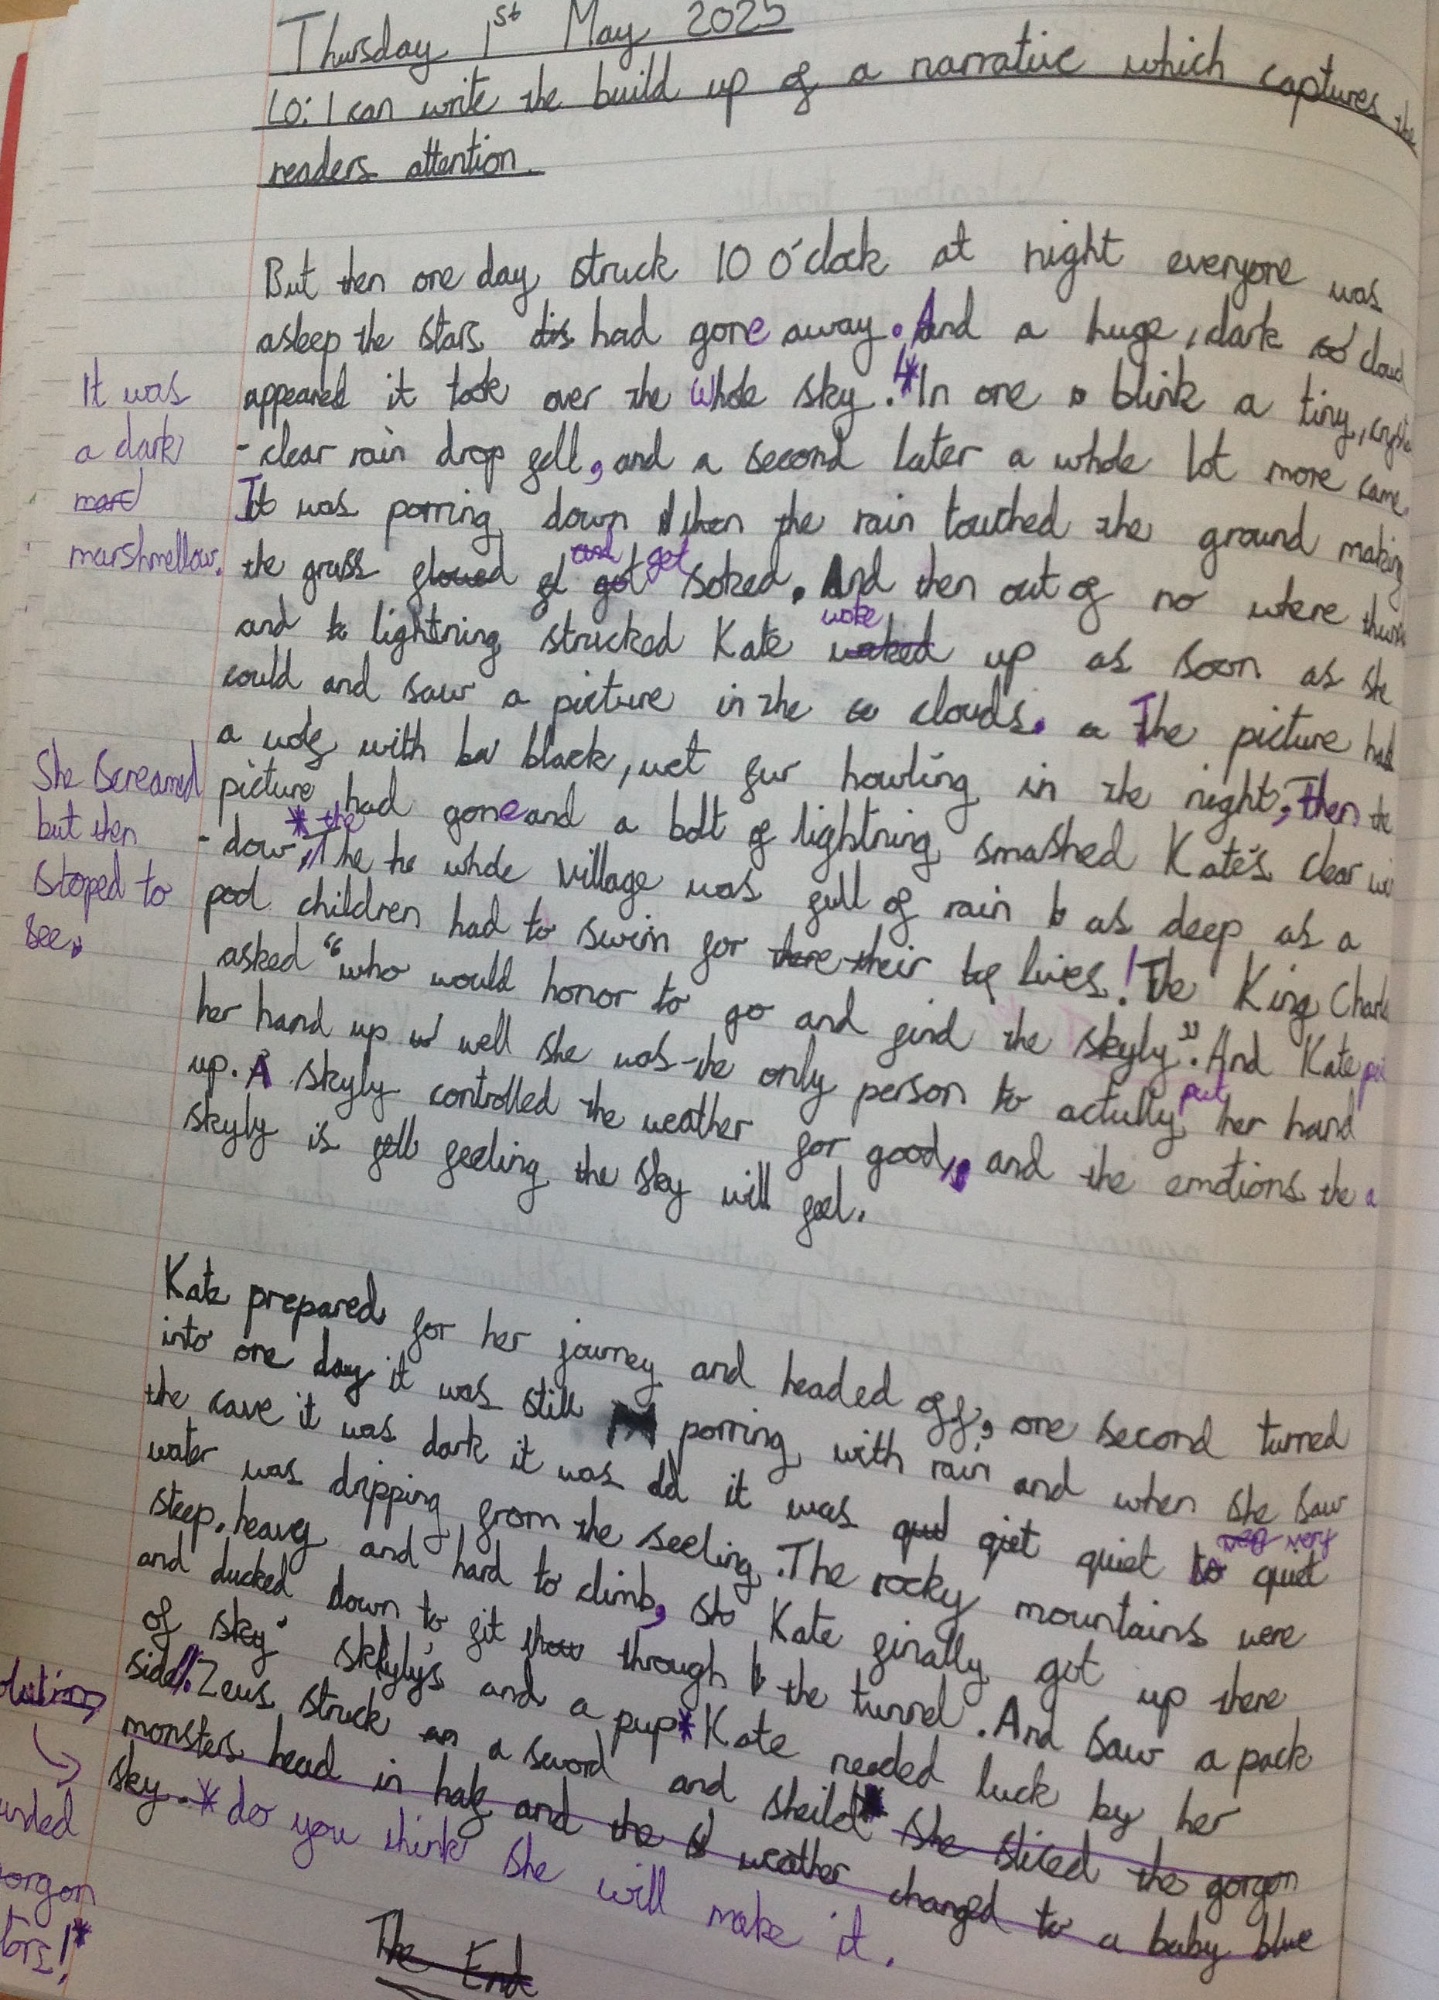 Thursday 1st May 2025
LO: I can write the build up of a narrative which captures the
readers attention.
But then one day struck 10 o'clock at night everyone was
asleep the stars had gone away. And a huge, dark cloud
appeared it took over the whole sky.* In one blink a tiny,
It was
a dark
marshmellow.
-clear rain drop fell, and a second later a whole lot more came.
It was porring down then the rain touched the ground making
the grass and get soked. And then out of no where
and lightning strucked Kate woke up as soon as she
could and saw a picture in the clouds. The picture had
a wolf with black, wet fur howling in the night, then the
She screamed
but then
stoped to
see.
picture * had gone and a bolt of lightning smashed Kate's clear
-dow, the whole village was full of rain as deep as a
pool children had to swim for their lives! The King
asked "who would honor to go and find the skyly". And Kate
her hand up well she was the only person to actully put her hand
up. A skyly controlled the weather for good, and the emotions the
skyly is feeling the sky will feel.
Kate prepared for her journey and headed off, one second turned
into one day it was still porring with rain and when she saw
the cave it was dark it was it was quiet very quiet
water was dripping from the seeling. The rocky mountains were
steep, heavy and hard to climb, so Kate finally got up there
and ducked down to fit through the tunnel. And saw a pack
of skyly's and a pup* Kate needed luck by her
side. Zeus struck a sword and sheild* she sliced the gorgon
monsters head in half and the weather changed to a baby blue
sky. * do you think she will make it.
The End